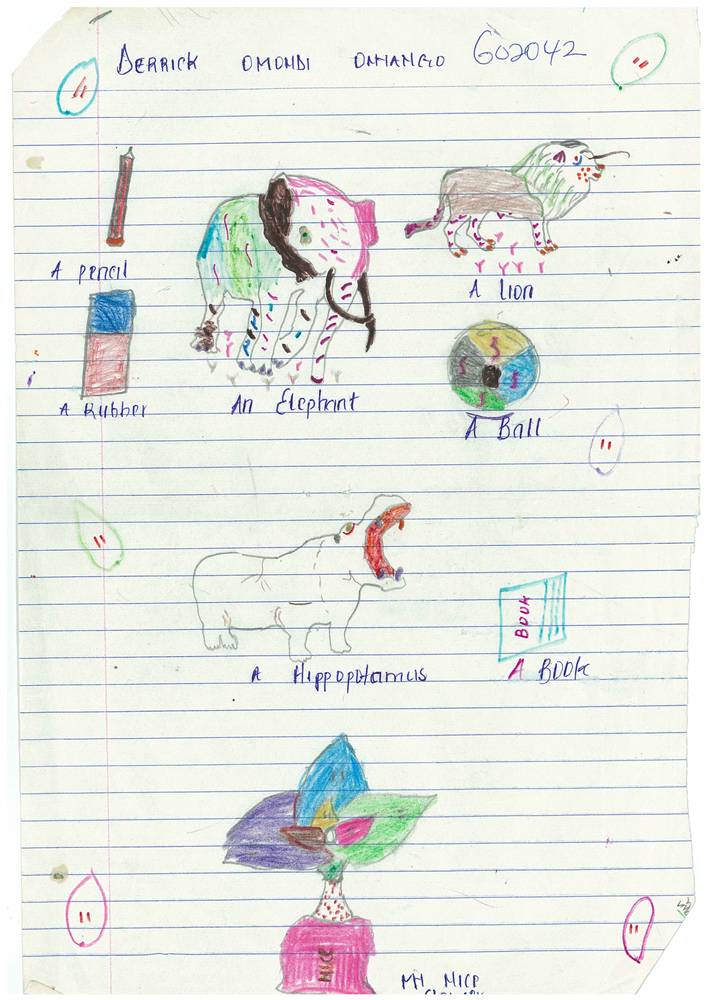 DERRICK OMONDI ONYANGO G02042
A pencil
A Lion
A Rubber
An Elephant
A Ball
BOOK
A Hippopotamus
A BOOK
NICE
MY NICE